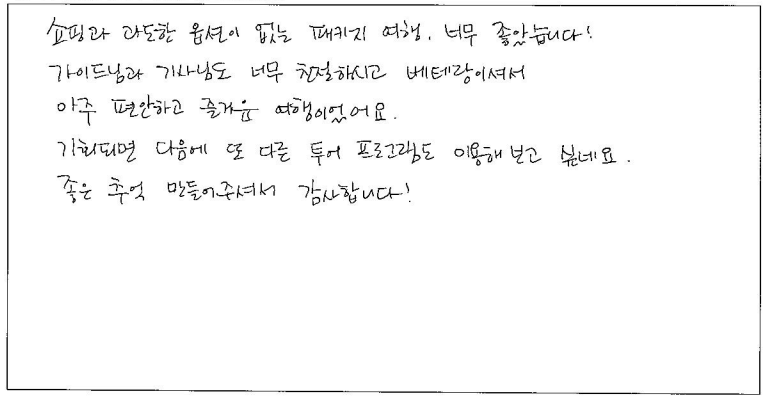 쇼핑과 과도한 옵션이 없는 패키지 여행. 너무 좋았습니다!
가이드님과 기사님도 너무 친절하시고 베테랑이셔서
아주 편안하고 즐거운 여행이었어요.
기회되면 다음에 또 다른 투어 프로그램도 이용해보고 싶네요.
좋은 추억 만들어주셔서 감사합니다!